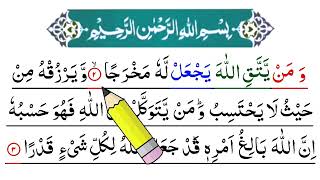 بِسْمِ اللهِ الرَّحْمٰنِ الرَّحِيْمِ
وَ مَنْ يَّتَّقِ اللّٰهَ يَجْعَلْ لَّهٗ مَخْرَجًا ۙ﴿۲﴾ وَّ يَرْزُقْهُ مِنْ
حَيْثُ لَا يَحْتَسِبُ ؕ وَ مَنْ يَّتَوَكَّلْ اللّٰهِ فَهُوَ حَسْبُهٗ
اِنَّ اللّٰهَ بَالِغُ اَمْرِهٖ ؕ قَدْ جَعَلَ اللّٰهُ لِكُلِّ شَيْءٍ قَدْرًا ﴿۳﴾